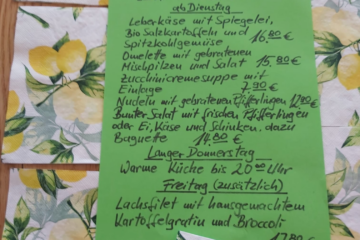 ab Dienstag
Leberkäse mit Spiegelei,
Bio Salzkartoffeln und
Spitzkohlgemüse 16,80 €
Omelette mit gebratenen
Mischpilzen und Salat 15,80 €
Zucchinicremesuppe mit
Einlage 7,90 €
Nudeln mit gebratenen Pfifferlingen, 17,80 €
Bunter Salat mit frischen Pfifferlingen
oder Ei, Käse und Schinken, dazu
Baguette 14,80 €
Langer Donnerstag
Warme Küche bis 20 00 Uhr
Freitag (zusätzlich)
Lachsfilet mit hausgemachtem
Kartoffelgratin und Broccoli
17,80 €